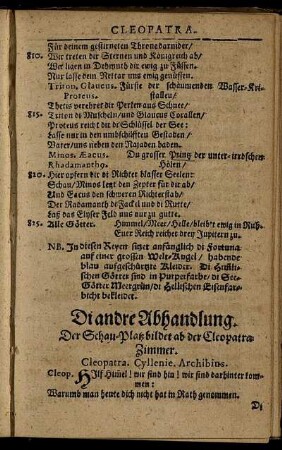 CLEOPATRA.
Für deinem gestirnten Throne darnider/
810. Wir treten dir Sternen und Königreich ab/
Wir ligen in Dehmuth dir ewig zu Füssen.
Nur lasse dein Nektar uns ewig genüssen.
Triton. Glaucus. Fürst der schäumenden Wasser-Kri-
Proteus. stallen/
Thetis verehret dir Perlen aus Schnee/
815. Triton di Muscheln/ und Glaucus Corallen/
Proteus reicht dir di Schlüssel der See:
Lasse nur in den umbschüfften Gestaden/
Vater/ uns neben den Najaden baden.
Minos. Æacus. Du grosser Printz der unter-irrdschen
Rhadamanthq. Hölen/
820. Hier opfern dir di Richter blasser Seelen:
Schau/ Minos lent den Zepter für dir ab/
Und Eacus den schweren Richterstab/
Der Radamanth di Fackel und di Rutte/
Laß das Elyser Feld uns nur zu gutte.
825. Alle Götter. Himmel/ Meer/ Helle/ bleib't ewig in Ruh.
Euer Reich reichet drey Jupitern zu.
NB. In diesen Reyen sitzet anfänglich di Fortuna
auf einer grossen Welt-Kugel/ habende
blau aufgeschürtzte Kleider. Di Himli-
schen Götter sind in Purpurfarbe/ di See-
Götter Meergrün/ di Hellischen Eisenfar-
bicht bekleidet.
Di andre Abhandlung.
Der Schau-Platz bildet ab der Cleopatra
Zimmer.
Cleopatra. Cyllenie. Archibius.
Cleop. Hilf Himel! wir sind hin! wir sind darhinter kom-
men:
Warumb man heute dich nicht hat in Rath genommen.
Di